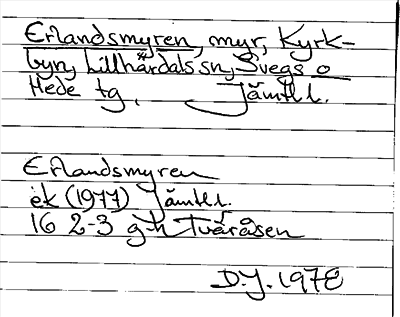 Erlandsmyren, myr, Kyrk-
byn, Lillhärdals sn, Svegs o
Hede tg, Jämtl l.
Erlandsmyren
ek (1977) Jämtl l.
16 2-3 g-h Tvåråsen
D.J. 1978